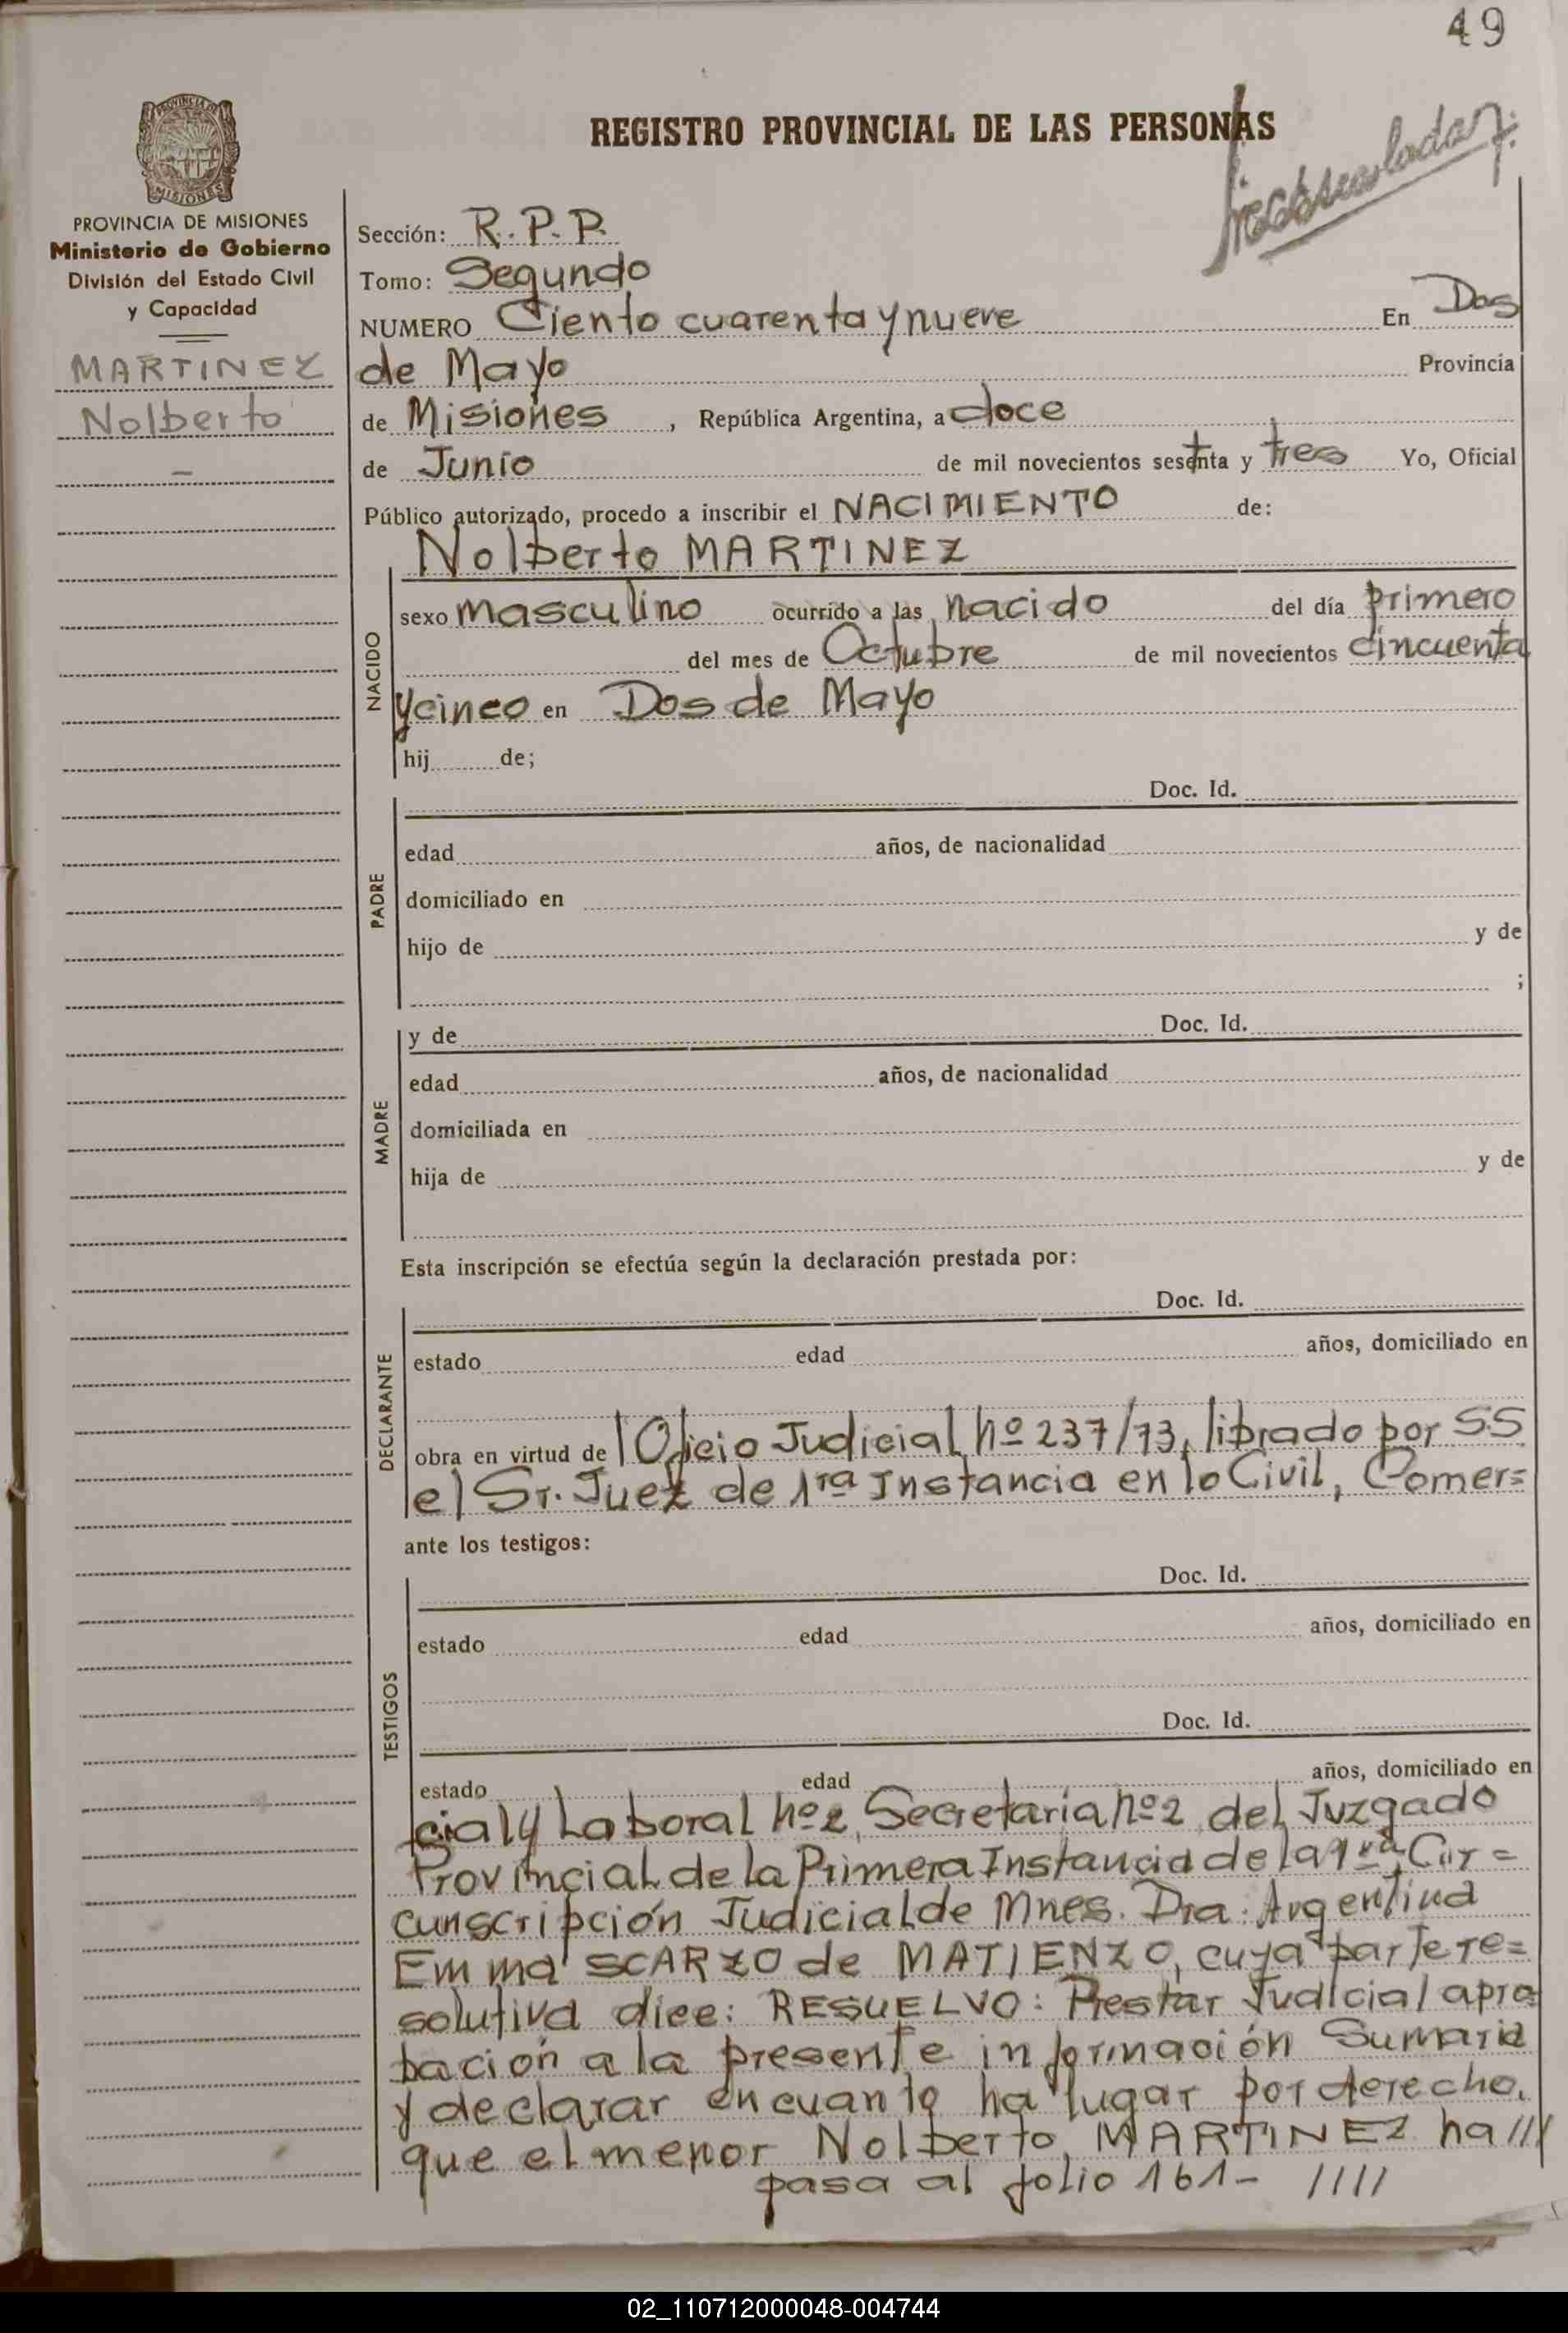 49
REGISTRO PROVINCIAL DE LAS PERSONAS
PROVINCIA DE MISIONES
MISIONES
PROVINCIA DE MISIONES
Ministerio de Gobierno
División del Estado Civil
y Capacidad
MARTINEZ
Nolberto
–
Sección: R.P.P.
Tomo: Segundo
NUMERO Ciento cuarenta y nueve En Dos
de Mayo Provincia
de Misiones, República Argentina, a doce
de Junio de mil novecientos sesenta y tres Yo, Oficial
Público autorizado, procedo a inscribir el NACIMIENTO de:
Nolberto MARTINEZ
NACIDO
sexo masculino ocurrido a las nacido del día primero
del mes de Octubre de mil novecientos cincuenta
y cinco en Dos de Mayo
hij de;
PADRE
Doc. Id.
edad años, de nacionalidad
domiciliado en
hijo de y de
;
MADRE
y de Doc. Id.
edad años, de nacionalidad
domiciliada en
hija de y de
Esta inscripción se efectúa según la declaración prestada por:
DECLARANTE
Doc. Id.
estado edad años, domiciliado en
obra en virtud de l Oficio Judicial nº 237/73, librado por SS
el Sr. Juez de 1ra Instancia en lo Civil, Comer=
ante los testigos:
TESTIGOS
Doc. Id.
estado edad años, domiciliado en
Doc. Id.
estado edad años, domiciliado en
cial y Laboral nº 2, Secretaria nº 2 del Juzgado
Provincial de la Primera Instancia de la 1ra Cir=
cunscripción Judicial de Mnes. Dra. Argentina
Emma SCARZO de MATIENZO, cuya parte re=
solutiva dice: RESUELVO: Prestar Judicial apro=
bación a la presente información Sumaria
y declarar en cuanto ha lugar por derecho,
que el menor Nolberto MARTINEZ ha ///
pasa al folio 161- ////
02_110712000048-004744